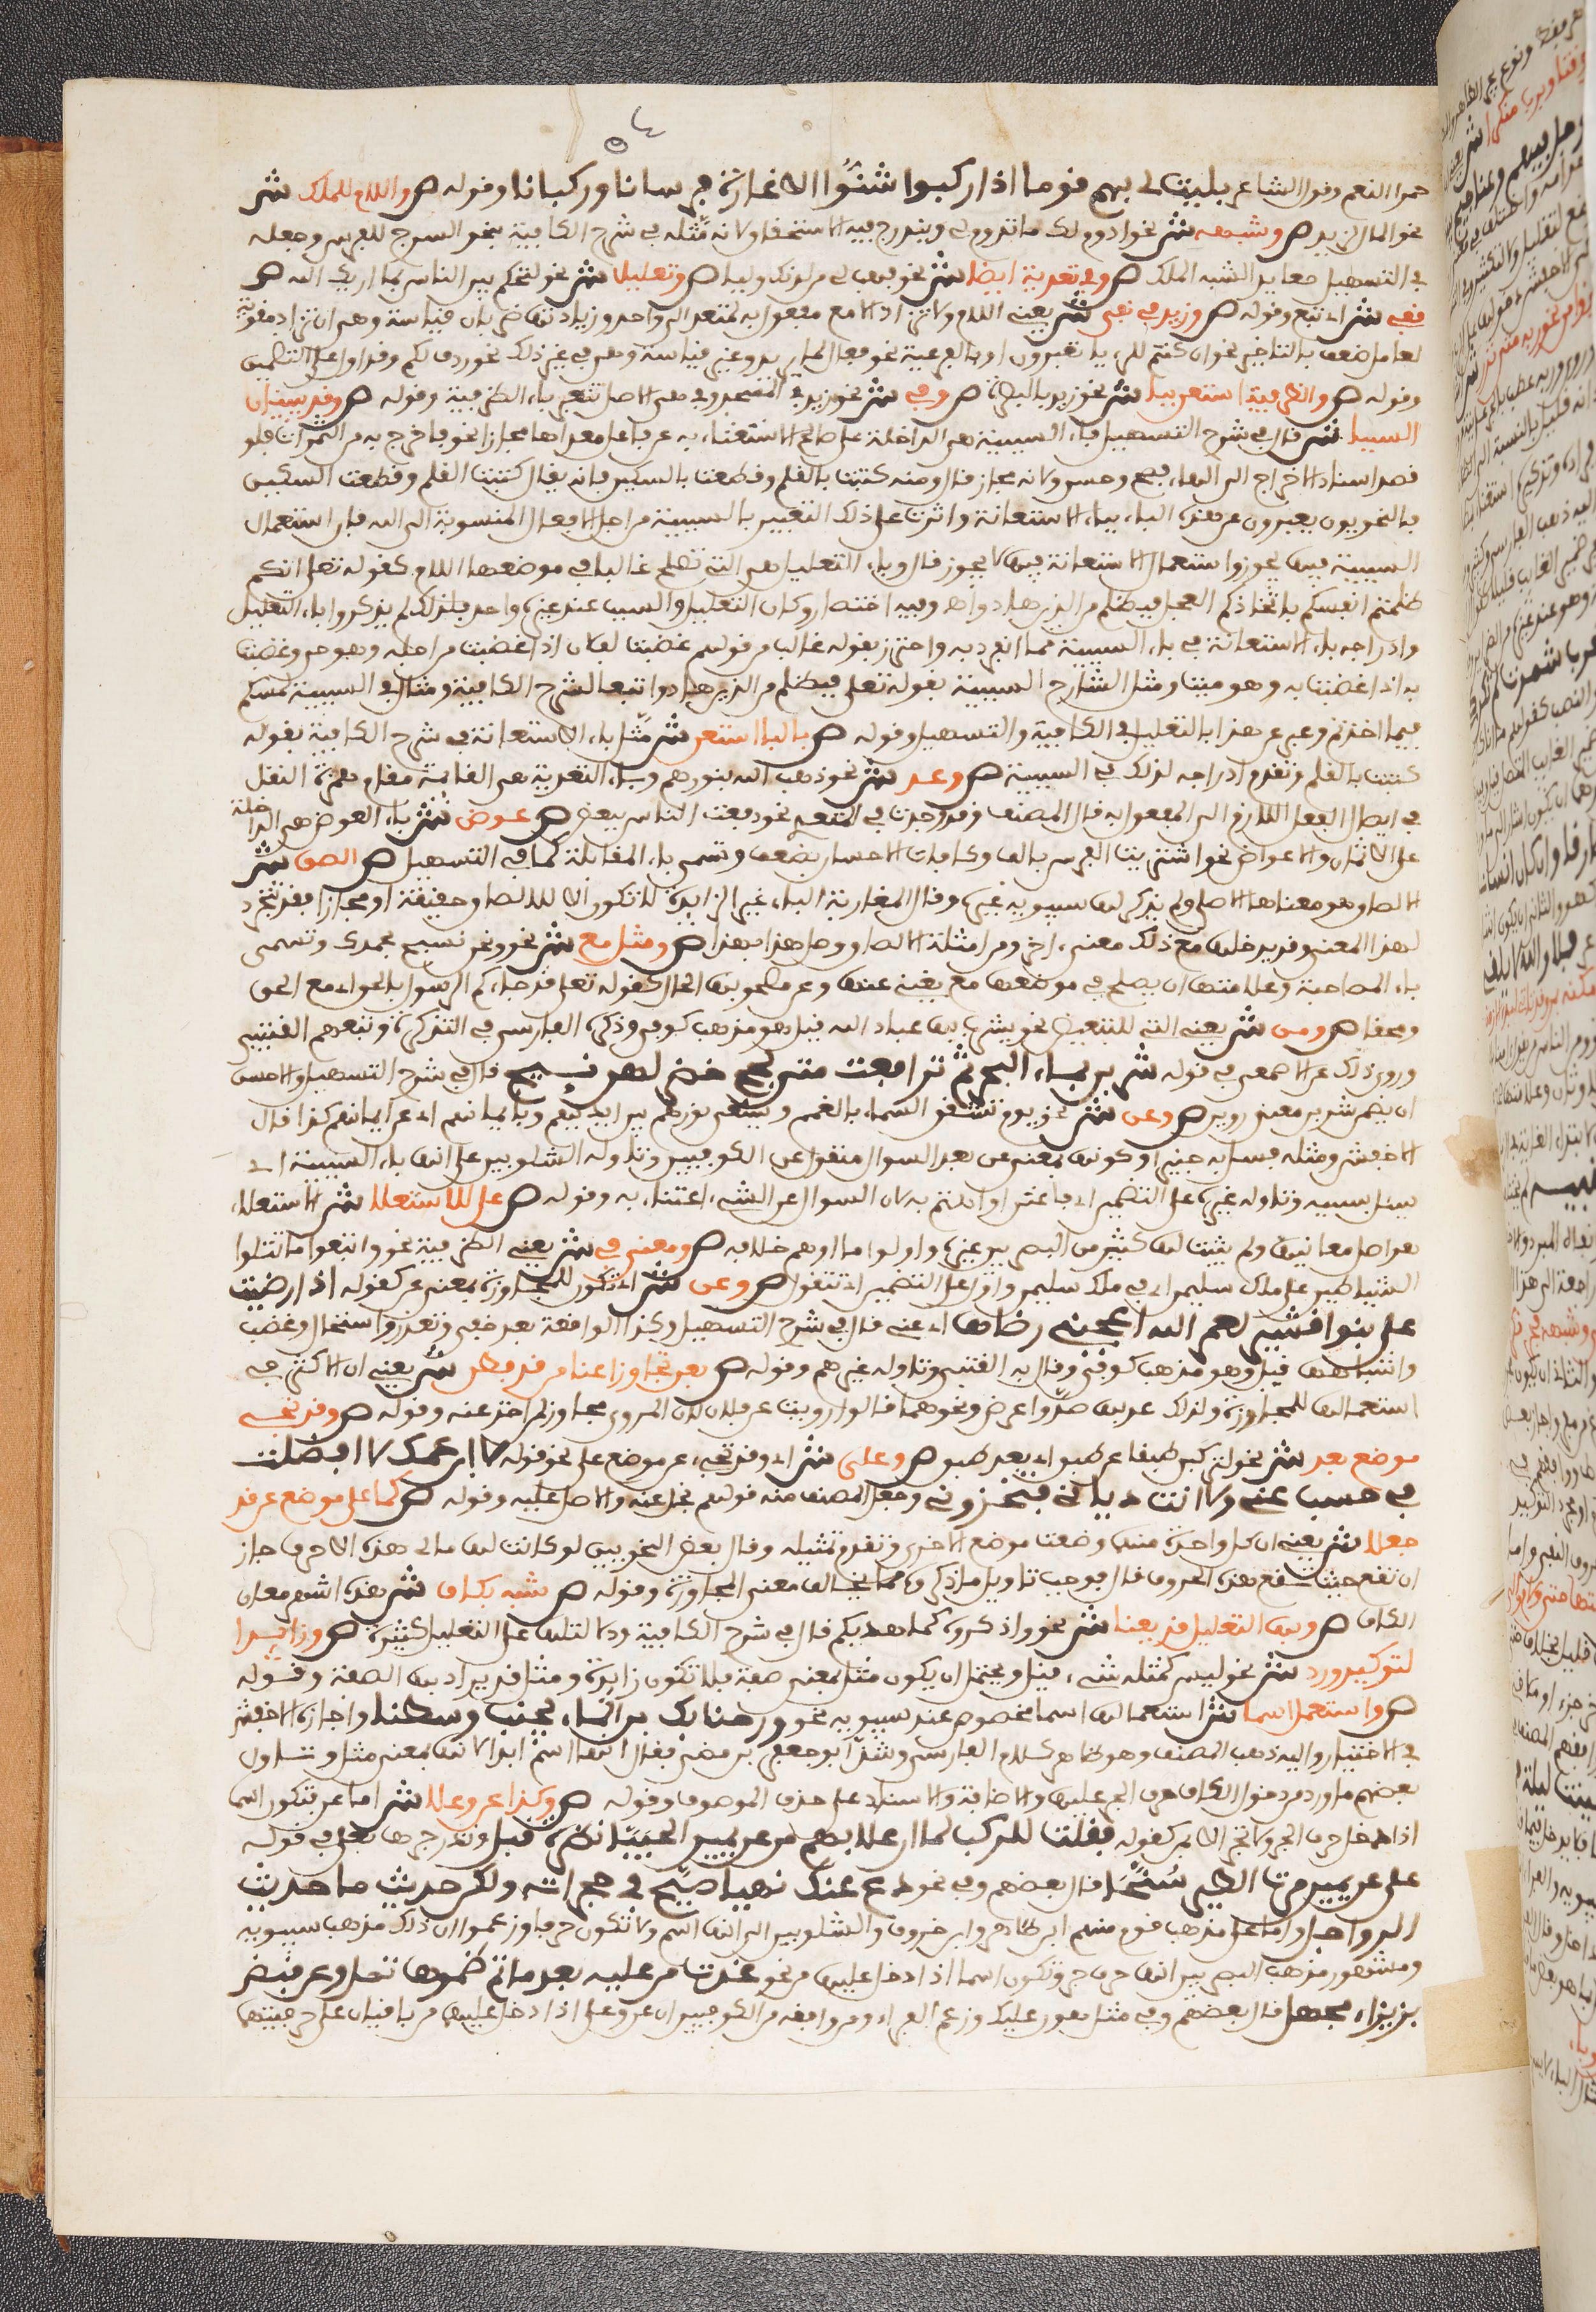 حمر النعم وقول الشاعر فليت لي بهم قوما اذا ركبوا شنوا الاغارة فرسانا وركبانا وقوله ص واللام للملك ش
نحو المال لزيد ص وشبهه ش نحو ادوم لك ما تدوم لي ويندرج فيه الاستحقاق لانه مثله في شرح الكافية بنحو السرج للفرس وجعله
في التسهيل مغايرا لشبه الملك ص وفي تعدية ايضا ش نحو فهب لي من لدنك وليا ص وتعليل ش نحو لتحكم بين الناس بما اريك الله ص
قفي ش اي تبع وقوله ص وزيد ش يعني اللام ولا تزاد الا مع مفعول به لمتعد الى واحد وزيادتها ضربان قياسية وهي ان تزاد مقوية
لعامل ضعف بالتاخير نحو ان كنتم للرءيا تعبرون او بالفرعية نحو فعال لما يريد وغير قياسية وهي في غير ذلك نحو ردف لكم وقد اول على التضمين
وقوله ص والظرفية استبن ببا ش نحو زيد بالبصرة ص وفي ش نحو زيد في المسجد وفي هي الاصل تنبيه باء الظرفية وقوله ص وقد يبينان
السببا ش قال في شرح التسهيل باء السببية هي الداخلة على صالح للاستغناء به عن فاعل معداها مجازا نحو فاخرج به من الثمرات فلو
قصد اسناد الاخراج الى الهاء لصح وحسن ولاكنه مجاز قال ومنه كتبت بالقلم وقطعت بالسكين فانه يقال كتبت القلم وقطعت السكين
فالنحويون يعبرون عن هذه الباء بباء الاستعانة واثرت على ذلك التعبير بالسببية من اجل الافعال المنسوبة الى الله فان استعمال
السببية فيها يجوز واستعمال الاستعانة فيها لا يجوز قال وباء التعليل هي التي تصلح غالبا في موضعها اللام كقوله تعلى انكم
ظلمتم انفسكم باتخاذكم العجل فبظلم من الذين هادوا اهـ وفيه اختصار وكان التعليل والسبب عند غيره واحد فلذلك لم يذكروا باء التعليل
وادراجه باء الاستعانة في باء السببية مما انفرد به واحترز بقوله غالبا من قولهم غضبت لفلان اذا غضبت من اجله وهو حي وغضبت
به اذا غضبت به وهو ميت ومثل الشارح السببية بقوله تعلى فبظلم من الذين هادوا تبعا لشرح الكافية ومثال في السببية لمسكم
فيما اخذتم وعبر عن هذا بالتعليل في الكافية والتسهيل وقوله ص بالبا استعن ش مثل باء الاستعانة في شرح الكافية بقوله
كتبت بالقلم وتقدم ادراجه لذلك في السببية ص وعد ش نحو ذهب الله بنورهم وباء التعدية هي القائمة مقام همزة النقل
في ايصال الفعل اللازم الى المفعول به قال المصنف وقد وجدت في المتعدي نحو دفعت الناس ببعض ص عوض ش باء العوض هي الداخلة
على الاثمان والاعواض نحو اشتريت الفرس بالف وكافات الاحسان بضعف وتسمى باء المقابلة كما في التسهيل ص الصق ش
الالصاق هو معناها الاصلي ولم يذكر لها سيبويه غيره وقال المغاربة الباء غير الزايدة لا تكون الا للالصاق حقيقة او مجازا فقد تتجرد
لهذا المعنى وقد يدخلها مع ذلك معنى اخر ومن امثلة الالصاق وصل هذا بهذا ص ومثل مع ش نحو ونحن نسبح بحمدك وتسمى
باء المصاحبة وعلامتها ان يصلح في موضعها مع يغني عنها وعن مصحوبها الحال كقوله تعلى قد جاءكم الرسول بالحق اي مع الحق
ومحقا ص ومن ش يعني التي للتبعيض نحو يشرب بها عباد الله قيل هو مذهب كوفي وذكره الفارسي في التذكرة وتبعهم القتبي
وروي ذلك عن الاصمعي في قوله شربن بماء البحر ثم ترفعت متى لجج خضر لهن نئيج قال في شرح التسهيل والاحسن
ان يضمن شربن معنى روين ص وعن ش نحو ويوم تشقق السماء بالغمام ويسعى نورهم بين ايديهم وبايمانهم اي عن ايمانهم كذا قال
الاخفش ومثله فسئل به خبيرا وكونها بمعنى عن بعد السؤال منقول عن الكوفيين وتاوله الشلوبين على انها باء السببية اي
سئل بسببه وتاوله غيره على التضمين اي فاعتن او اهتم به لان السؤال عن الشيء اعتناء به وقوله ص على للاستعلا ش الاستعلاء
هو اصل معانيها ولم يثبت لها كثير من البصريين غيره واولوا ما اوهم خلافه ص ومعنى في ش يعني الظرفية نحو واتبعوا ما تتلوا
الشياطين على ملك سليمن اي في ملك سليمن واول على التضمين اي تتقول ص وعن ش اي تكون للمجاوزة بمعنى عن كقوله اذا رضيت
علي بنو قشير لعمر الله اعجبني رضاها اي عني قال في شرح التسهيل وكذا الواقعة بعد خفي وتعذر واستحال وغضب
واشباهها قيل وهو مذهب كوفي وقال به القتبي وتاوله غيرهم وقوله ص بعن تجاوزا عنا من قد فطن ش يعني ان الاكثر في
استعمالها للمجاوزة ولذلك عدي بها صد واعرض ونحوهما قالوا رويت عن فلان لان المروي مجاوز لمن اخذ عنه وقوله ص وقد تجي
موضع بعد ش نحو لتركبن طبقا عن طبق اي بعد طبق ص وعلى ش اي وقد تجيء عن موضع على نحو قوله لاه ابن عمك لا افضلت
في حسب عني ولا انت دياني فتخزوني وجعل المصنف منه قولهم بخل عنه والاصل عليه وقوله ص كما على موضع عن قد
جعلا ش يعني ان كل واحدة منهما وضعت موضع الاخرى وتقدم تمثيله وقال بعض النحويين لو كانت لها معاني هذه الاحرف جاز
ان تقع حيث تقع هذه الحروف قال فوجب تاويل ما ذكره مما يخالف معنى المجاوزة وقوله ص شبه بكاف ش هذه اشهر معاني
الكاف ص وبها التعليل قد يعنا ش نحو واذكروه كما هديكم قال في شرح الكافية ودلالتها على التعليل كثيرة ص وزايدا
لتوكيد ورد ش نحو ليس كمثله شيء قيل ويحتمل ان يكون مثل بمعنى صفة فلا تكون زايدة ومثل قد يراد بها الصفة وقوله
ص واستعمل اسما ش استعمالها اسما مخصوص عند سيبويه نحو ورحنا بكابن الماء يجنب وسطنا واجازه الاخفش
في الاختيار واليه ذهب المصنف وهو ظاهر كلام الفارسي وشذ ابو جعفر بن مضى فقال انها اسم ابدا لانها بمعنى مثل وتاول
بعضهم ما ورد من دخول الكاف حرف الجر عليها والاضافة والاسناد على حذف الموصوف وقوله ص وكذا عن وعلى ش اما عن فتكون اسما
اذا دخل حرف الجر ولا تجر الا بمن كقوله فقلت للركب لما ان علا بهم من عن يمين الحبيا نظرة قبل وندر جرها بعلى في قوله
على عن يميني مرت الطير سنحا قال بعضهم وفي نحو دع عنك نهبا صيح في حجراته ولكن حديث ما حديث
الرواحل واما على فذهب قوم منهم ابن طاهر وابن خروف والشلوبين الى انها اسم ولا تكون حرفا وزعموا ان ذلك مذهب سيبويه
ومشهور مذهب البصريين انها حرف جر وتكون اسما اذا دخل عليها من نحو غدت من عليه بعد ما تم ظمؤها تصل وعن قيض
بزيزاء مجهل قال بعضهم وفي مثل هون عليك وزعم الفراء ومن وافقه من الكوفيين ان عن وعلى اذا دخل عليهما من باقيان على حرفيتهما